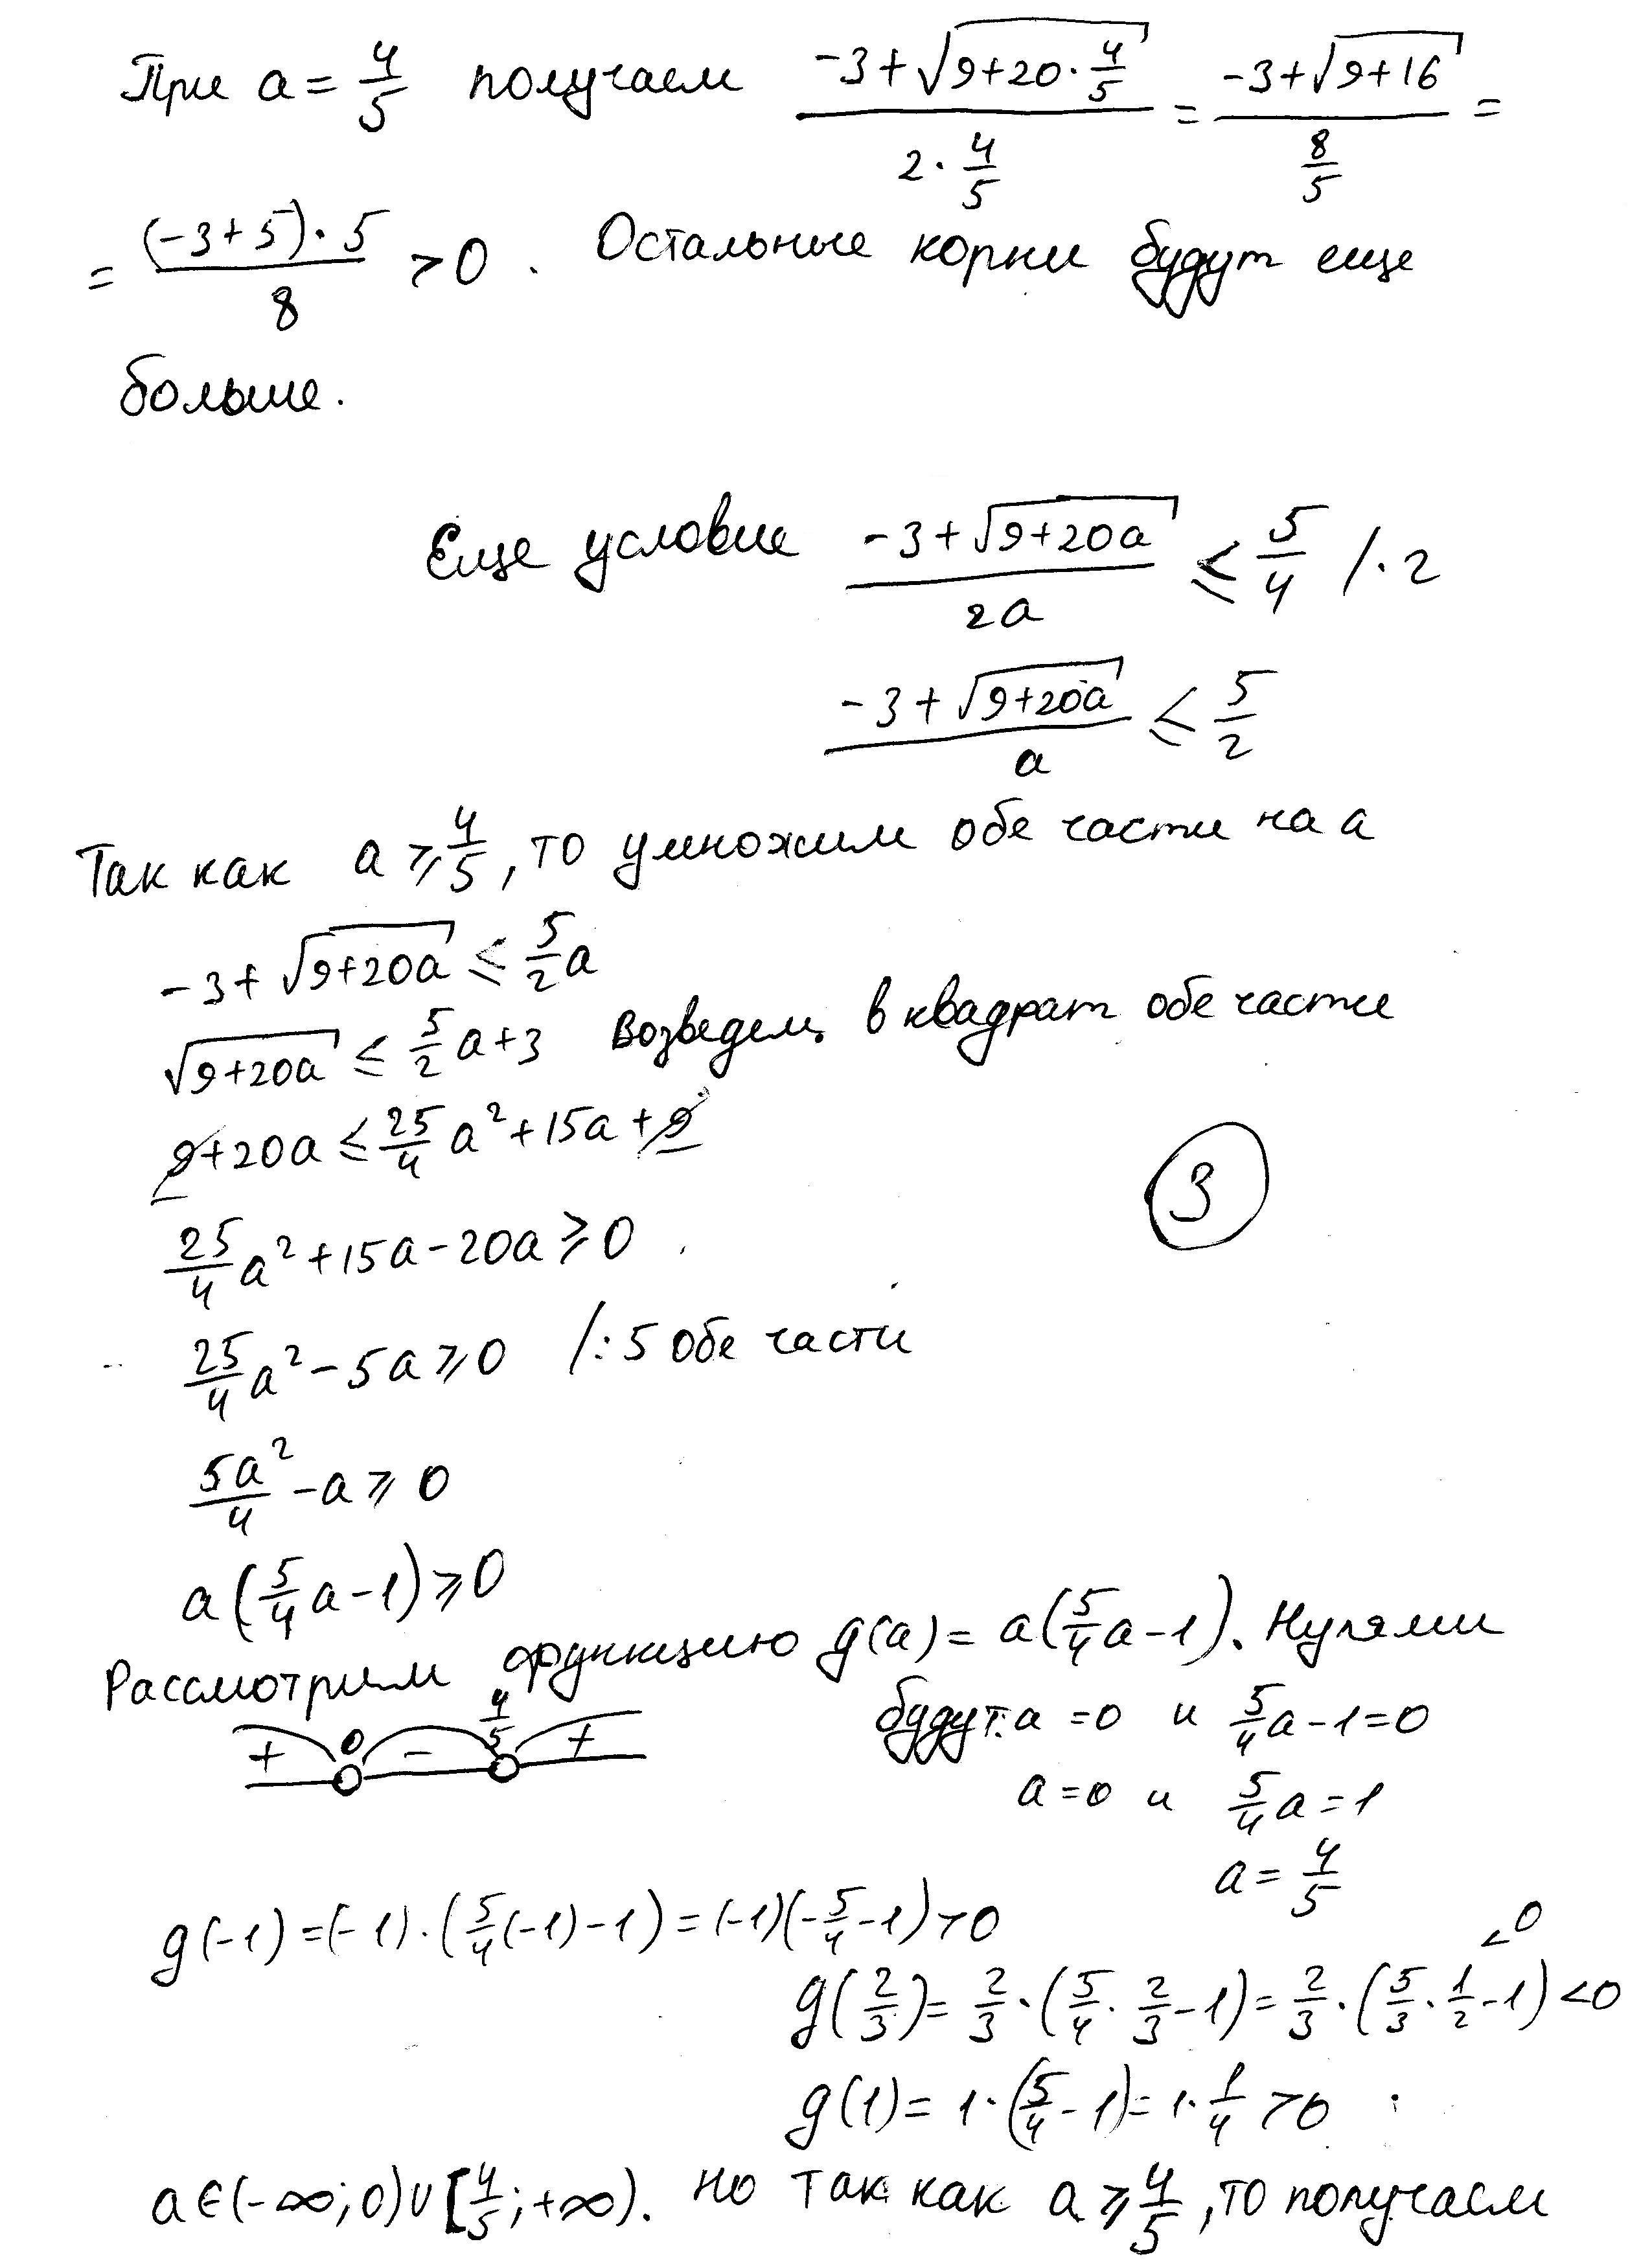 При a = 4/5 получаем (-3+√(9+20·4/5))/(2·4/5) = (-3+√(9+16))/(8/5) =
= ((-3+5)·5)/8 > 0. Остальные корни будут еще
больше.
Еще условие (-3+√(9+20a))/(2a) ≤ 5/4 /·2
(-3+√(9+20a))/a ≤ 5/2
Так как a ≥ 4/5, то умножим обе части на a
-3+√(9+20a) ≤ 5/2a
√(9+20a) ≤ 5/2a+3 Возведем в квадрат обе части
9+20a ≤ 25/4a²+15a+9
3
25/4a²+15a-20a ≥ 0
25/4a²-5a ≥ 0 /:5 обе части
5a²/4-a ≥ 0
a(5/4a-1) ≥ 0
Рассмотрим функцию g(a) = a(5/4a-1). Нулями
будут: a = 0 и 5/4a-1=0
+ 0 - 4/5 +
a = 0 и 5/4a = 1
a = 4/5
g(-1) = (-1)·(5/4(-1)-1) = (-1)(-5/4-1) > 0
<0
g(2/3) = 2/3·(5/4·2/3-1) = 2/3·(5/3·1/2-1) < 0
g(1) = 1·(5/4-1) = 1·1/4 > 0
a∈(-∞;0)∪[4/5;+∞). Но так как a ≥ 4/5, то получаем